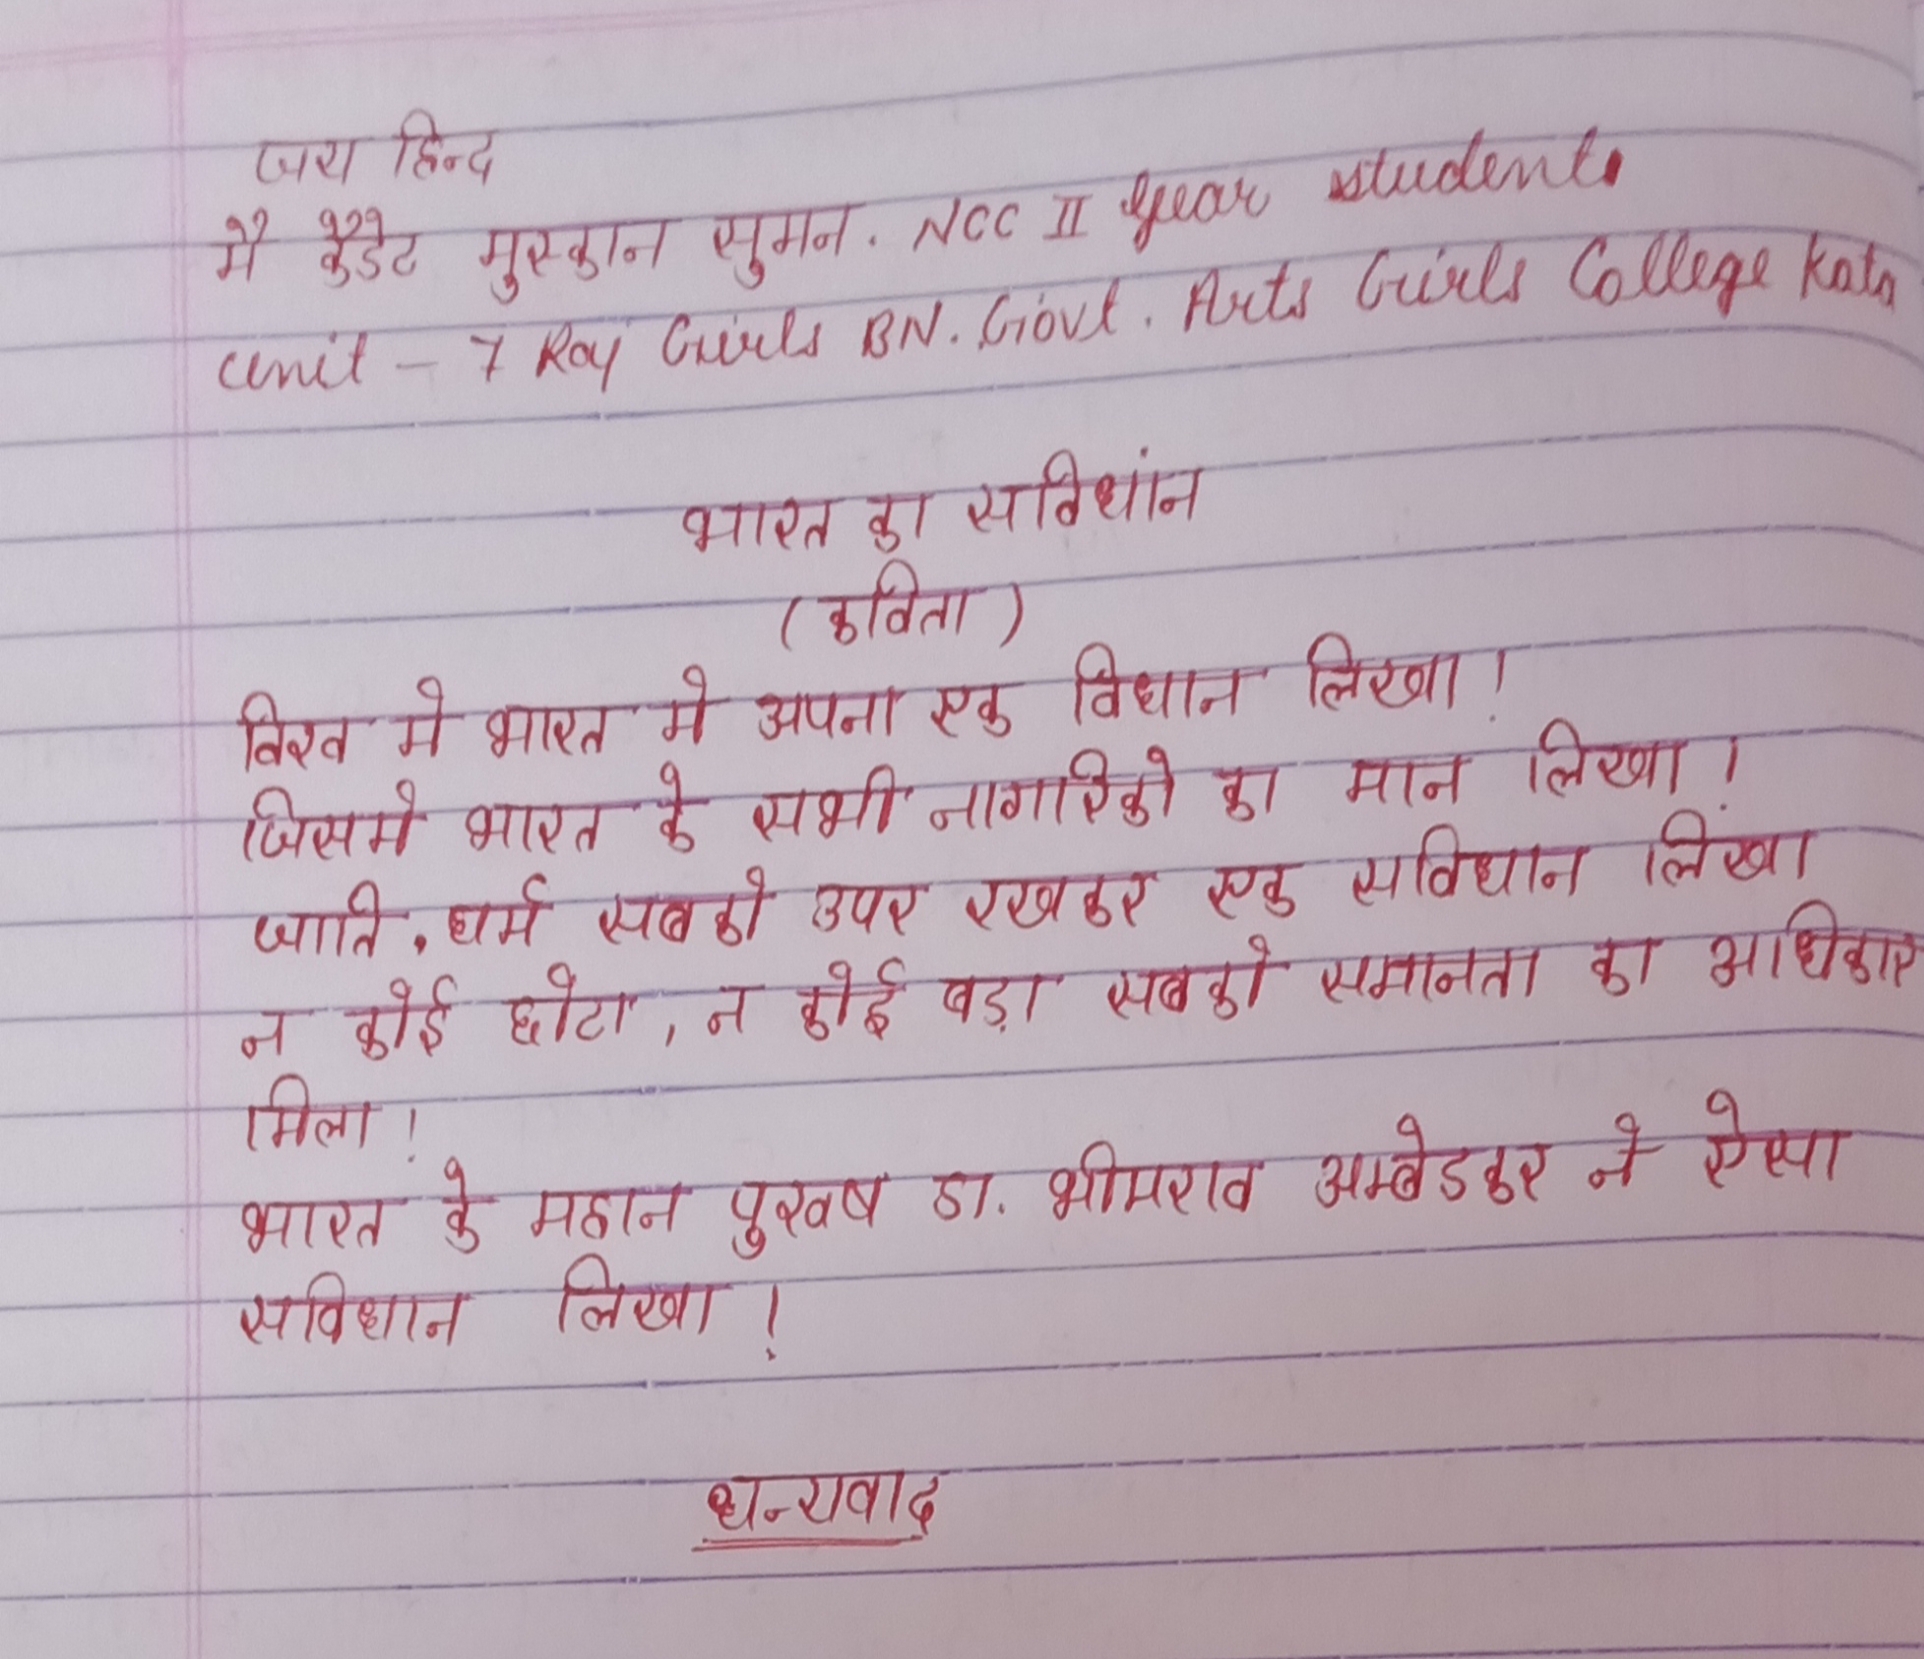 जय हिन्द
मै कैडेट मुस्कान सुमन. NCC II year student
unit - 7 Raj Girls BN. Govt. Arts Girls College Kota
भारत का सविधांन
(कविता)
विश्व मे भारत मे अपना एक विधान लिखा!
जिसमे भारत के सभी नागरिको का मान लिखा!
जाति, धर्म सबको उपर रखकर एक सविधान लिखा
न कोई छोटा, न कोई बड़ा सबको समानता का अधिकार
मिला!
भारत के महान पुरूष डा. भीमराव अम्बेडकर ने ऐसा
सविधान लिखा!
धन्यवाद